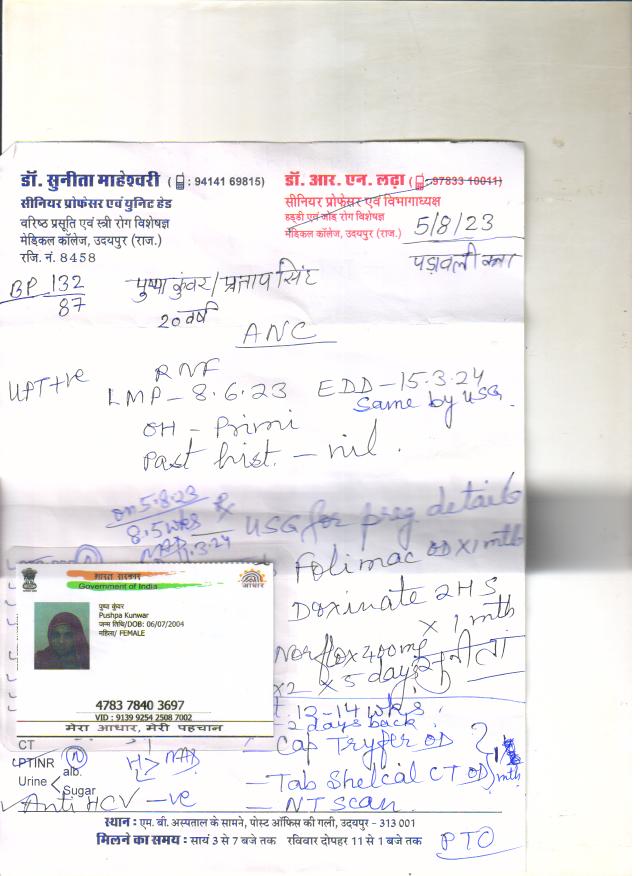 डॉ. सुनीता माहेश्वरी ( : 94141 69815)
सीनियर प्रोफेसर एवं युनिट हेड
वरिष्ठ प्रसूति एवं स्त्री रोग विशेषज्ञ
मेडिकल कॉलेज, उदयपुर (राज.)
रजि. नं. 8458
डॉ. आर. एन. लढ़ा ( : 97833 10011)
सीनियर प्रोफेसर एवं विभागाध्यक्ष
हड्डी एवं जोड़ रोग विशेषज्ञ
मेडिकल कॉलेज, उदयपुर (राज.)
5/8/23
BP 132
87
पुष्पा कुंवर/प्रताप सिंह
20 वर्ष
ANC
UPT +ve
RNF
LMP - 8.6.23 EDD - 15.3.24
Same by USG.
OH - Primi
Past hist. - nil.
on 5.8.23
8.5 wks
Rx
USG for preg details
Folimac OD x 1 mth
Doxinate 2HS
x 1 mth
Norflox 400 mg
x2 x 5 days
सुनीता
भारत सरकार
Government of India
आधार
पुष्पा कुंवर
Pushpa Kunwar
जन्म तिथि/DOB: 06/07/2004
महिला/ FEMALE
4783 7840 3697
VID : 9139 9254 2508 7002
मेरा आधार, मेरी पहचान
13-14 wks.
2 days back.
- Cap Tryfer OD
- Tab Shelcal CT OD
mth
- NT scan
CT
PTINR
Urine alb.
Sugar
N
Anti HCV -ve
स्थान : एम. बी. अस्पताल के सामने, पोस्ट ऑफिस की गली, उदयपुर - 313 001
मिलने का समय : सायं 3 से 7 बजे तक रविवार दोपहर 11 से 1 बजे तक
PTO